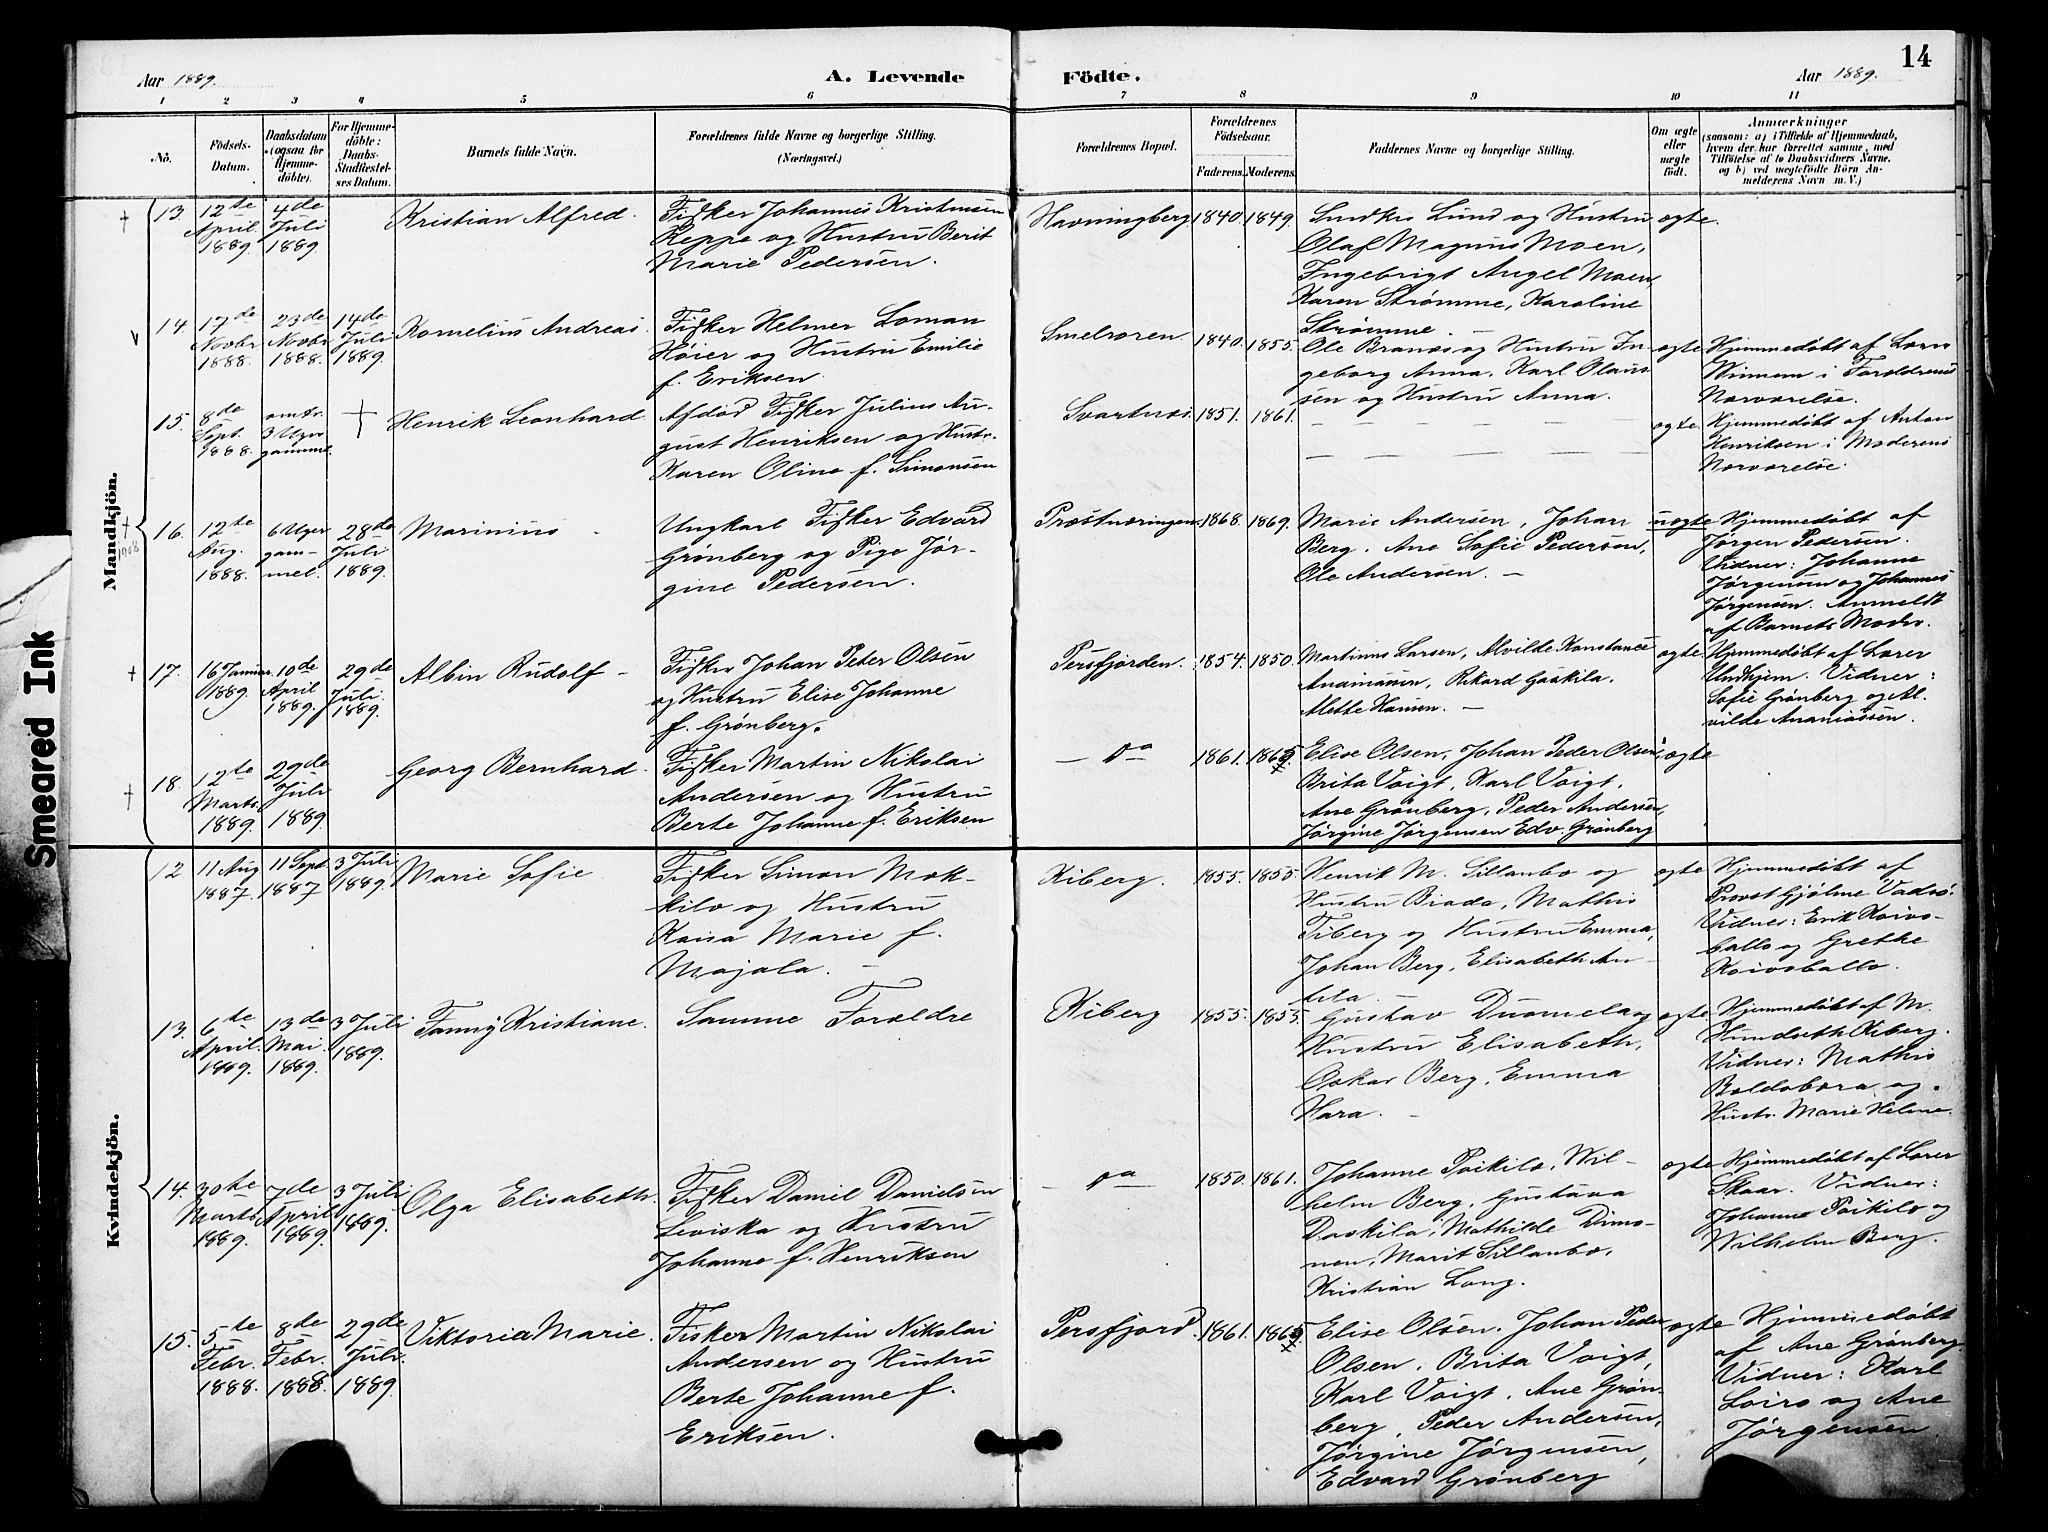 14
Aar 1889.
A. Levende
Födte.
Aar 1889.
1 2 3 4 5 6 7 8 9 10 11
No.
Födsels-
Datum.
Daabsdatum
(ogsaa for
Hjemme-
döbte).
For Hjemme-
döbte:
Daabs-
Stadfæstel-
ses Datum.
Barnets fulde Navn.
Forældrenes fulde Navne og borgerlige Stilling.
(Næringsvei.)
Forældrenes Bopæl.
Forældrenes
Födselsaar.
Faderens. Moderens.
Faddernes Navne og borgerlige Stilling.
Om ægte
eller
uægte
födt.
Anmærkninger
(saasom: a) i Tilfælde af Hjemmedaab,
hvem der har forrettet samme, med
Tilföielse af to Daabsvidners Navne.
og b) ved uægtefödte Börn An-
melderens Navn m. V.)
Mandkjön.
13.
12te
April
1889.
4de
Juli
1889.
Kristian Alfred.
Fisker Johannes Kristensen
Reppe og Hustru Berit
Marie Pedersen.
Havningberg.
1840.
1849.
Lund og Hustru
Olaf Magnus Moen,
Ingebrigt Angel Moen,
Karen Strømme, Karoline
Strømme.
ægte.
14.
17de
Novbr
1888.
23de
Novbr
1888.
14de
Juli
1889.
Kornelius Andreas.
Fisker Helmer Loman
Høier og Hustru Emilie
f. Eriksen.
Smelroren.
1840.
1855.
Ole Brands og Hustru In-
geborg Anna, Karl Olaus-
sen og Hustru Anna.
ægte
Hjemmedøbt af Lars
Winnem i Forældrenes
Nærværelse.
15.
8de
Sept.
1888.
omtr.
3 Uger
gamme.
†
Henrik Leonhard
Afdød Fisker Julius Au-
gust Henriksen og Hustr.
Karen Oline f. Simonsen
Svartnæs.
1851.
1861.
ægte.
Hjemmedøbt af Anton
Henriksen i Moderens
Nærværelse.
16.
†
1908
12te
Aug.
1888.
6 Uger
gam-
mel.
28de
Juli
1889.
Marinius
Ungkarl Fisker Edvard
Grønberg og Pige Jør-
gine Pedersen.
Præstnæringen.
1868.
1869.
Marie Andersen, Johan
Berg, Ane Sofie Pedersen,
Ole Andersen.
uægte
Hjemmedøbt af
Jørgen Pedersen.
Vidner: Johanne
Jørgensen og Johannes
Jørgensen. Anmeldt
af Barnets Moder.
17.
16 Januar
1889.
10de
April
1889.
29de
Juli
1889.
Albin Rudolf
Fisker Johan Peter Olsen
og Hustru Elise Johanne
f. Grønberg.
Persfjorden.
1854.
1850.
Martinus Larsen, Alvilde Konstance
Ananiassen, Rikard Gaskila.
Alette Hansen.
ægte
Hjemmedøbt af Lærer
Undhjem. Vidner:
Sofie Grønberg og Al-
vilde Ananiassen.
18.
12te
Marts
1889.
29de
Juli
1889
Georg Bernhard.
Fisker Martin Nikolai
Andersen og Hustru
Berte Johanne f. Eriksen
do
1861.
1865.
Elise Olsen, Johan Peder Olsen,
Brita Voigt, Karl Voigt,
Ane Grønberg, Peder Andersen,
Jørgine Jørgensen Edv. Grønberg
ægte
Kvindekjön.
12
11 Aug
1887.
11 Sept
1887
3 Juli
1889.
Marie Sofie.
Fisker Simon Mok-
kila og Hustru
Kaisa Marie f.
Majala.
Kiberg.
1855.
1855.
Henrik M. Sillanbo og
Hustru Briada, Mathis
Tiberg og Hustru Emma,
Johan Berg, Elisabeth An-
tila.
ægte
Hjemmedøbt af
Provst Gjølme Vadsø.
Vidner: Erik Koivo-
ballo og Grethe
Koivoballo.
13.
6te
April.
1889.
13de
Mai.
1889.
3 Juli
1889.
Fanny Kristiane.
Samme Forældre
Kiberg
1855.
1855.
Gustav Duomela og
Hustru Elisabeth,
Oskar Berg, Emma
Hara.
ægte
Hjemmedøbt af M.
Hundseth Kiberg.
Vidner: Mathis
Boldobæra og
Hustr. Marie Helene.
14.
30te
Marts
1889.
7de
April
1889.
3 Juli
1889.
Olga Elisabeth.
Fisker Daniel Danielsen
Leviska og Hustru
Johanne f. Henriksen
do
1850.
1861.
Johanne Poikila, Wil-
helm Berg, Gustava
Daskila, Mathilde Dimo-
nen, Marit Sillanbo,
Kristian Lang.
ægte
Hjemmedøbt af Lærer
Skaar. Vidner:
Johanne Poikila og
Wilhelm Berg.
15.
5te
Febr.
1888.
8de
Febr.
1888.
29de
Juli
1889.
Viktoria Marie.
Fisker Martin Nikolai
Andersen og Hustru
Berte Johanne f.
Eriksen.
Persfjord.
1861.
1865.
Elise Olsen. Johan Peder
Olsen, Brita Voigt,
Karl Voigt, Ane Grøn-
berg, Peder Andersen,
Jørgine Jørgensen,
Edvard Grønberg
ægte
Hjemmedøbt
af Ane Grønberg
Vidner: Karl
Loiro og Ane
Jørgensen.
Smeared Ink